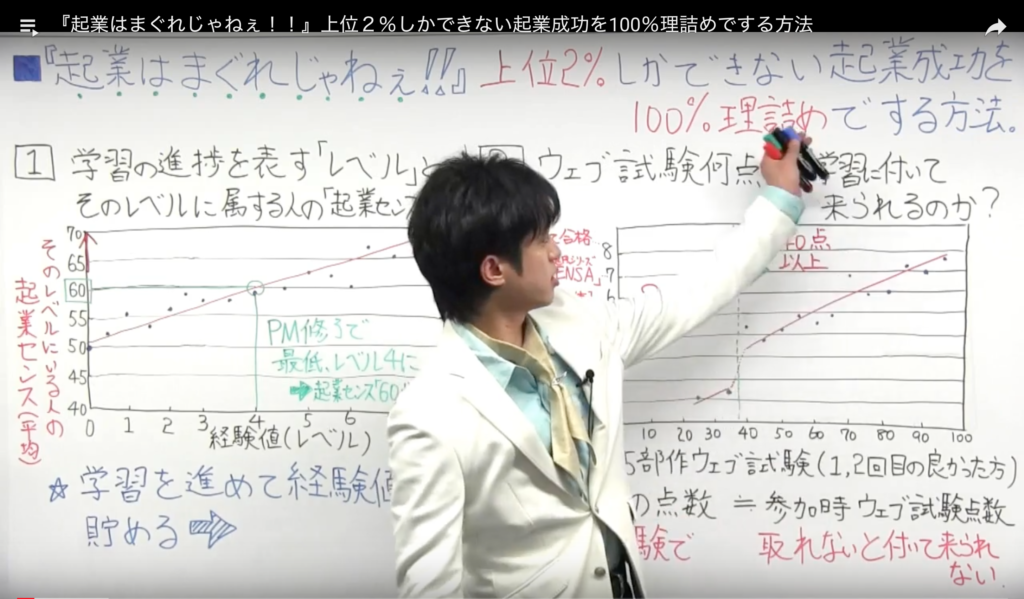 『起業はまぐれじゃねぇ！！』上位２％しかできない起業成功を100％理詰めでする方法
『起業はまぐれじゃねぇ!!』上位2%しかできない起業成功を
100%理詰めでする方法。
1 学習の進捗を表す「レベル」と
そのレベルに属する人の「起業センス
そのレベルにいる人の
起業センス(平均)
70
65
60
55
50
45
40
0 1 2 3 4 5 6
経験値(レベル)
PM修了で
最低、レベル4に
➡起業センス「60
☆学習を進めて経験値
貯める⇨
ウェブ試験何点 学習に付いて
来られるのか?
合格
シリーズ
ENSA」
8
7
6
40点
以上
10 20 30 40 50 60 70 80 90 100
5部作ウェブ試験(1,2回目の良かった方)
の点数 ≒ 参加時ウェブ試験点数
験で 取れないと付いて来られ
ない.